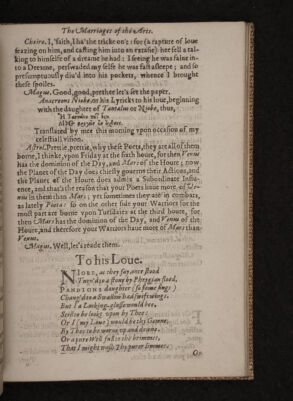 The Marriages of the Arts.
Cheiro. I, 'faith, I ha' the tricke on't; for (a rapture of loue
seazing on him, and casting him into an extasie) hee fell a tal-
king to himselfe of a dreame he had: I seeing he was falne in-
to a Dreame, perswaded my selfe he was fast asleepe; and so
presumptuously diu'd into his pockets, whence I brought
these spoiles.
Magus. Good, good, prethee let's see the paper.
Anacreons his Lyricks to his loue, beginning
with the daughter of Tantalus or Niobe, thus,
Ἡ Ταντάλου ποτ' ἔστη
Λίθος
Translated by mee this morning vpon occasion of my
celestiall vision.
Astrol. Prettie, prettie, why these Poets, they are all of them
borne, I thinke, vpon Friday at the sixth houre, for then Venus
has the dominion of the Day, and Mars of the Houre; now,
the Planet of the Day does chiefly gouerne their Actions, and
the Planet of the Houre does admit a Subordinate Influ-
ence, and that's the reason that your Poets haue more of Ve-
nus in them than Mars; yet sometimes they are in combats,
as lately Poeta: so on the other side your Warriors for the
most part are borne vpon Tuesdaies at the third houre, for
then Mars has the dominion of the Day, and Venus of the
Houre, and therefore your Warriors haue more of Mars than
Venus.
Magus. Well, let's reade them.
To his Loue.
NIOBE, as they say, once stood
Turn'd to a stone by Phrygian flood,
PANDIONS daughter (so fame sings)
Chang'd to a Swallow had swift wings.
But I a Looking-glasse would bee,
Still to be lookt vpon by Thee:
Or I (my Loue) would be thy Gowne,
By Thee to be worne vp and downe.
Or a pure Well full to the brimmes,
That I might wash Thy purer limmes.
Or